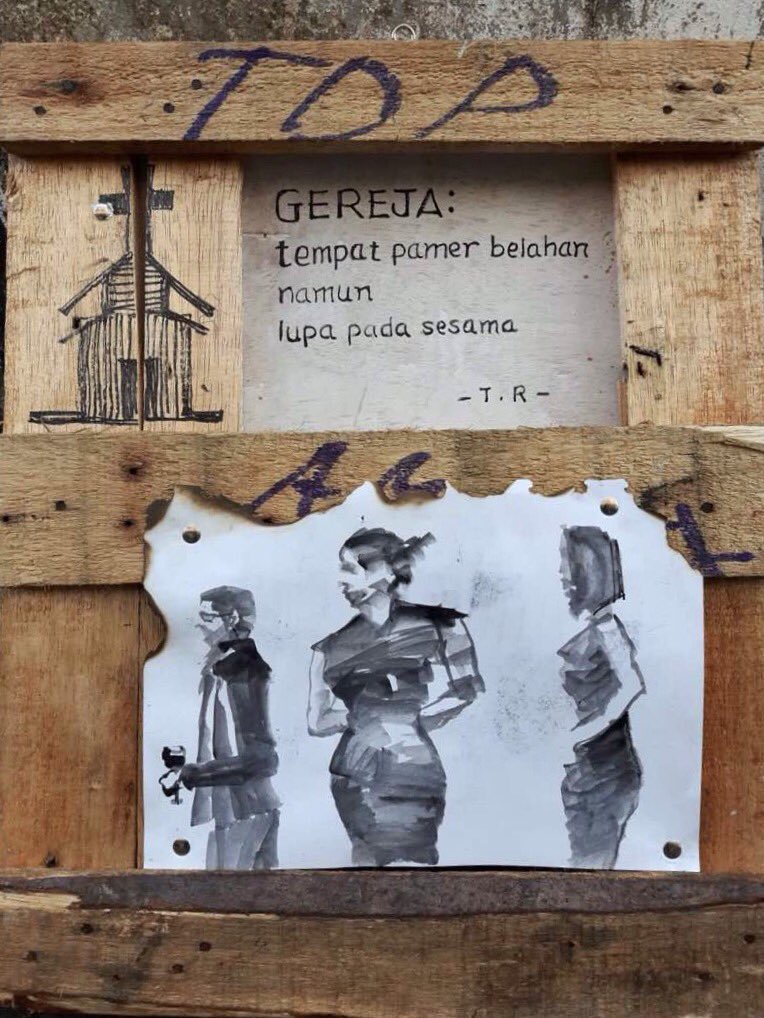 TOP
GEREJA:
tempat pamer belahan
namun
lupa pada sesama
- T.R -